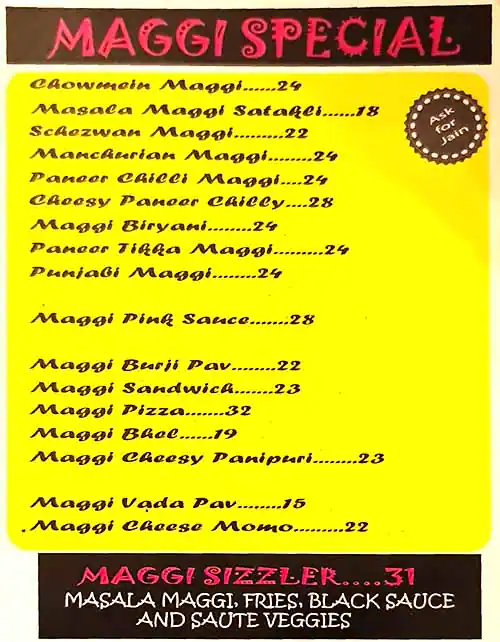 MAGGI SPECIAL
Chowmein Maggi......24
Masala Maggi Satakli......18
Schezwan Maggi.........22
Manchurian Maggi........24
Paneer Chilli Maggi....24
Cheesy Paneer Chilly....28
Maggi Biryani........24
Paneer Tikka Maggi.........24
Punjabi Maggi........24
Ask
for
Jain
Maggi Pink Sauce.......28
Maggi Burji Pav........22
Maggi Sandwich.......23
Maggi Pizza.......32
Maggi Bhel......19
Maggi Cheesy Panipuri........23
Maggi Vada Pav........15
Maggi Cheese Momo.........22
MAGGI SIZZLER....31
MASALA MAGGI, FRIES, BLACK SAUCE
AND SAUTE VEGGIES